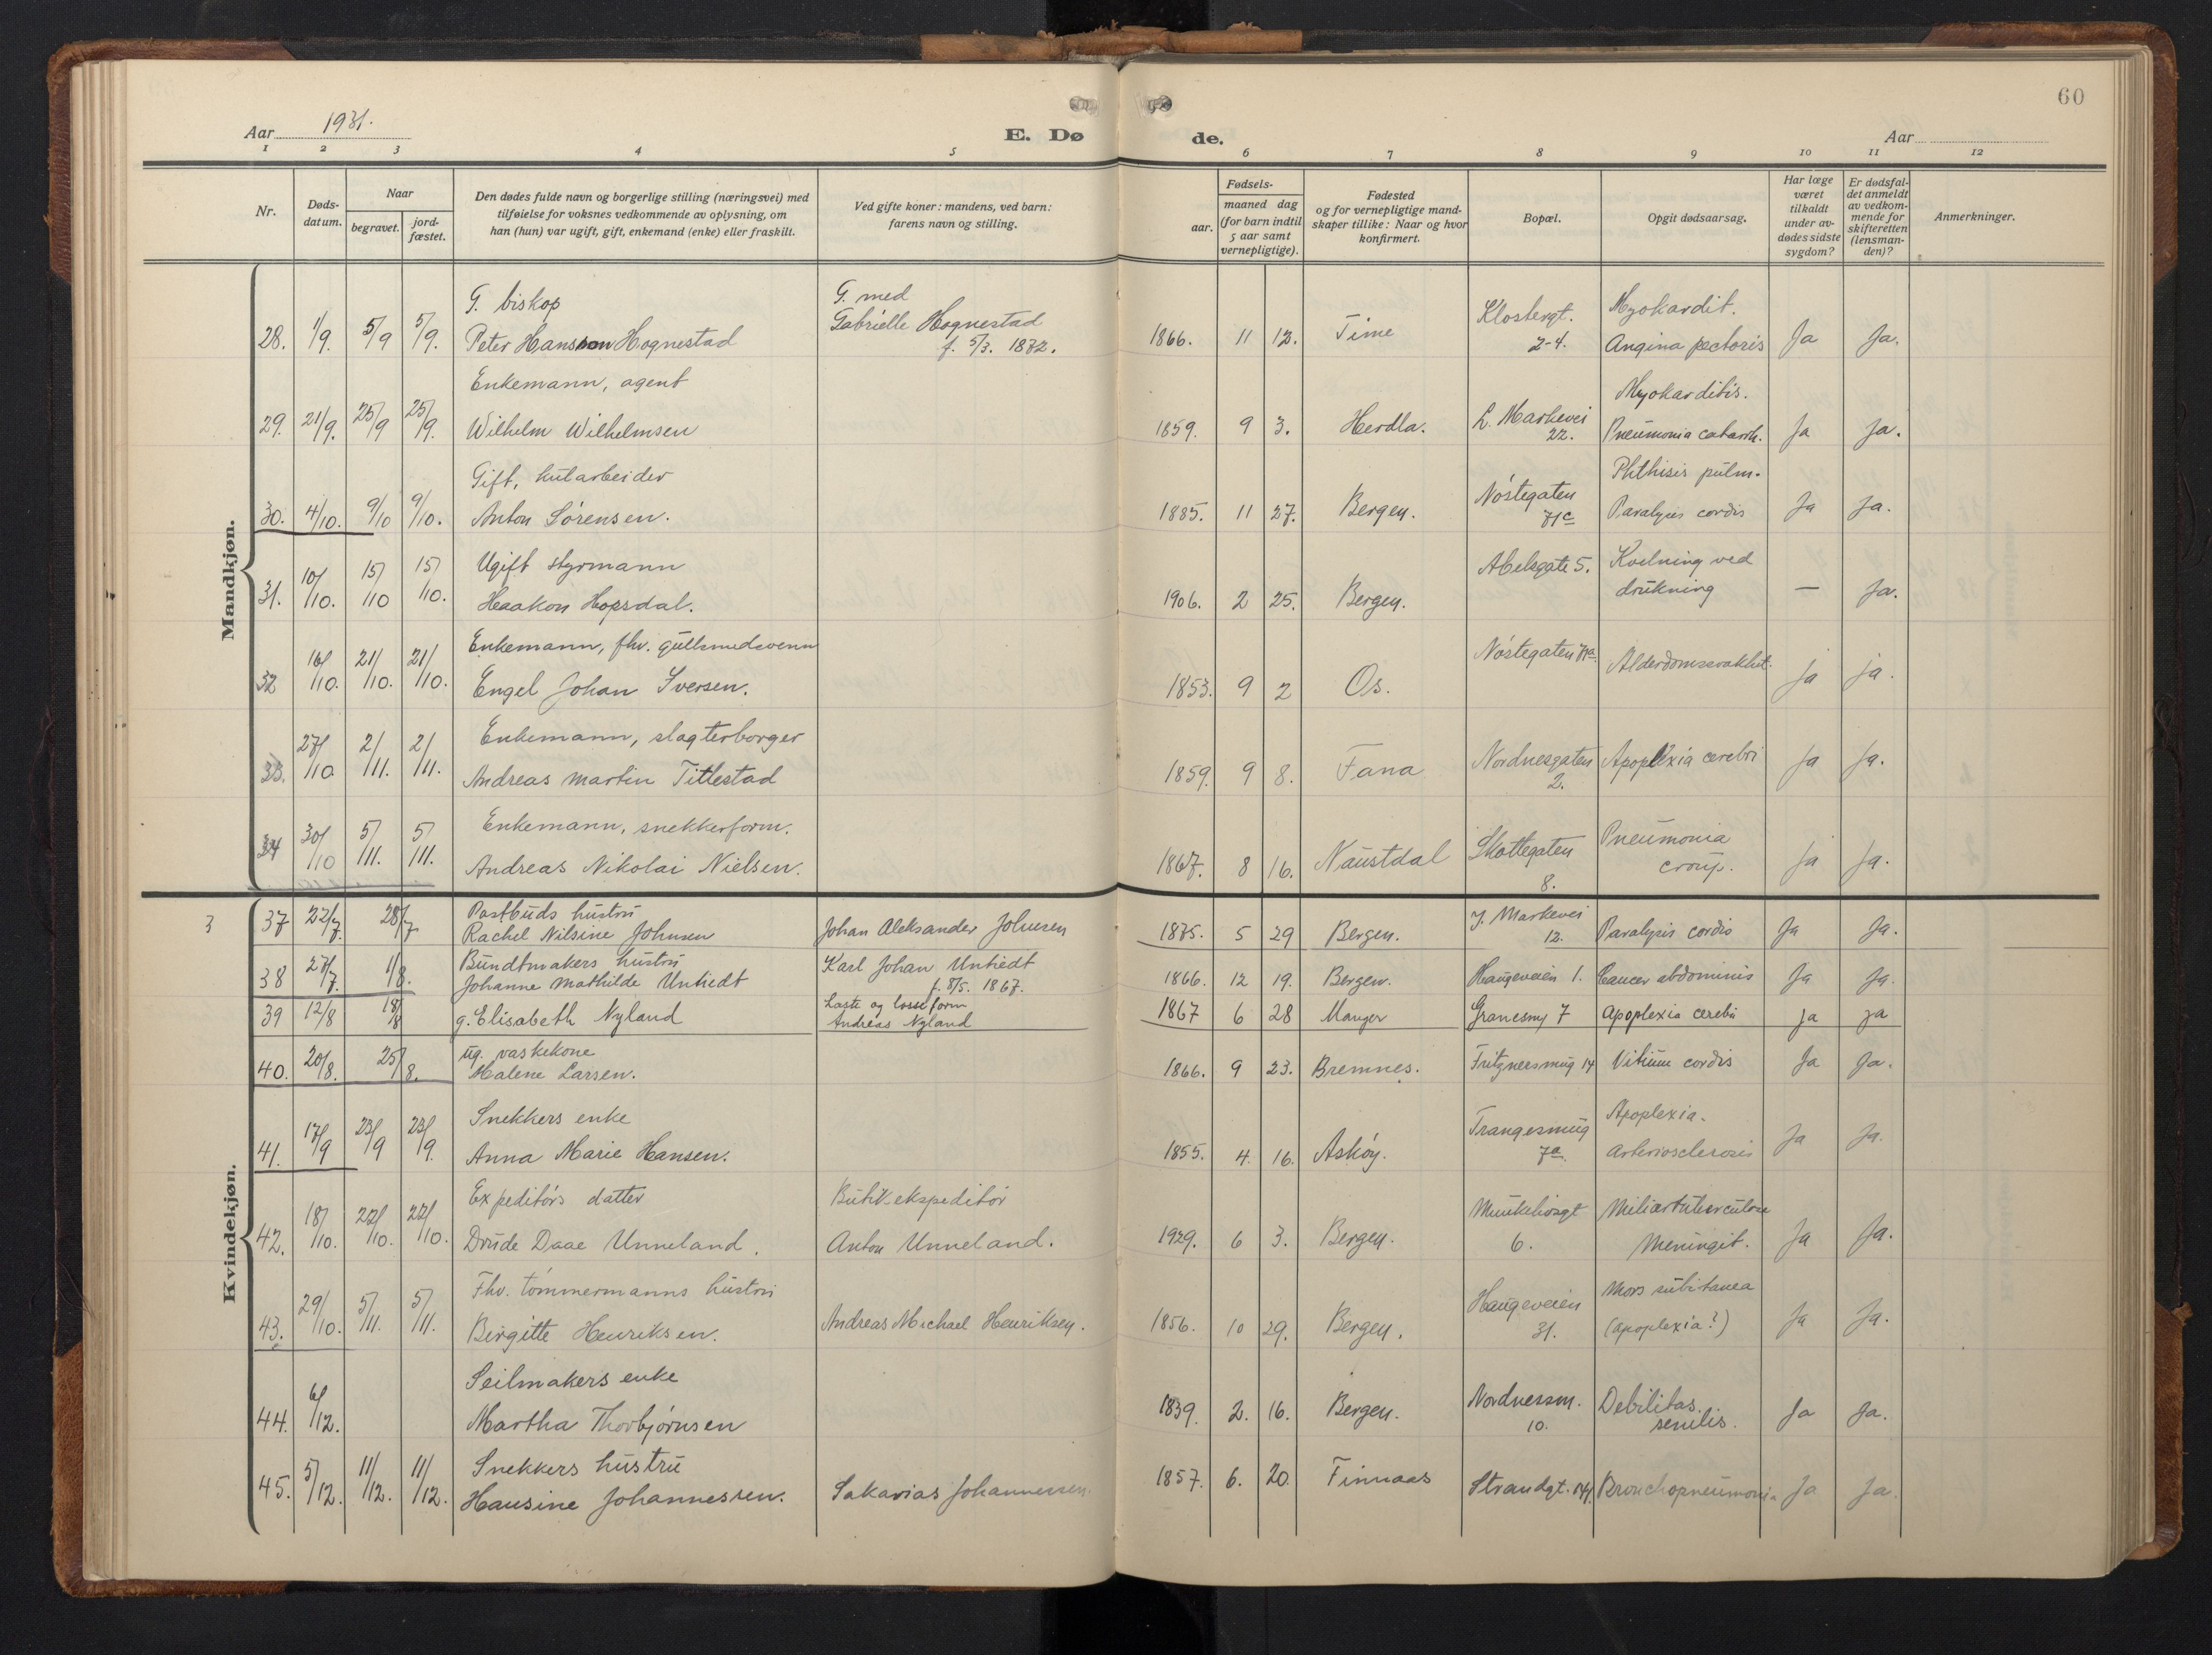 60
Aar 1931.
E. Dø de.
Aar
1 2 3 4 5 6 7 8 9 10 11 12
Nr.
Døds-
datum.
Naar
begravet.
jord-
fæstet.
Den dødes fulde navn og borgerlige stilling (næringsvei) med
tilføielse for voksnes vedkommende av oplysning, om
han (hun) var ugift, gift, enkemand (enke) eller fraskilt.
Ved gifte koner: mandens, ved barn:
farens navn og stilling.
Fødsels-
aar.
maaned dag
(for barn indtil
5 aar samt
vernepligtige).
Fødested
og for vernepligtige mand-
skaper tillike: Naar og hvor
konfirmert.
Bopæl.
Opgit dødsaarsag.
Har læge
været
tilkaldt
under av-
dødes sidste
sygdom?
Er dødsfal-
det anmeldt
av vedkom-
mende for
skifteretten
(lensman-
den)?
Anmerkninger.
Mandkjøn.
G. biskop G. med Klostergt. Myokardit.
28. 1/9. 5/9 5/9. Peter Hansson Hognestad Gabrielle Hognestad 1866. 11 12. Time 2-4. Angina pectoris Ja Ja.
f. 5/3. 1872.
Enkemann, agent L. Markevei Myokarditis.
29. 21/9. 25/9 25/9. Wilhelm Wilhelmsen 1859. 9 3. Herdla. 22. Pneumonia catarrh. Ja Ja.
Gift, Nöstegaten Phthisis pulm.
30. 4/10. 9/10 9/10. Anton Sörensen. 1885. 11 27. Bergen. 71c Paralysis cordis Ja Ja.
Ugift styrmann Abelsgate 5. Kvelning ved
31. 10/10. 15/10 15/10. Haakon Hopsdal. 1906. 2 25. Bergen. drukning — Ja.
Enkemann, fhv. gullsmedsvenn Nöstegaten 71a
32 16/10. 21/10. 21/10. Engel Johan Iversen. 1853. 9 2 Os. Alderdomssvakhet. Ja ja.
Enkemann, slagterborger Nordnesgaten
33. 27/10 2/11. 2/11. Andreas Martin Titlestad 1859. 9 8. Fana 2. Apoplexia cerebri Ja Ja.
Enkemann, snekkerform. Skottegaten Pneumonia
34 30/10 5/11. 5/11. Andreas Nikolai Nielsen. 1867. 8 16. Naustdal 8. croup. Ja Ja.
Kvindekjøn.
3
Postbuds hustru J. Markevei
37 22/7. 28/7 Rachel Nilsine Johnsen Johan Aleksander Johnsen 1875. 5 29 Bergen. 12. Paralysis cordis Ja Ja.
Bundtmakers hustru Karl Johan Untiedt
38 27/7. 1/8. Johanne Mathilde Untiedt f. 8/5. 1867. 1866. 12 19. Bergen. Haugeveien 1. Cancer abdominis Ja Ja.
Laste og losseform
39 12/8 18/8 g. Elisabeth Nyland Andreas Nyland 1867 6 28 Manger Granesmg 7 Apoplexia cerebri ja ja
ug. vaskekone
40. 20/8. 25/8. Malene Larsen. 1866. 9 23. Bremnes. Fritznersmug 14 Vitium cordis Ja Ja.
Snekkers enke Trangesmug Apoplexia.
41. 17/9 23/9 23/9. Anna Marie Hansen. 1855. 4. 16. Asköy. 7a. Arteriosclerosis Ja Ja.
Expeditörs datter Butik-ekspeditör Munkebiosgt Miliærtuberculose
42. 18/10. 22/10. 22/10. Drude Daae Unneland. Anton Unneland. 1929. 6 3. Bergen. 6. Meningit. Ja Ja.
Fhv. tömmermanns hustru Haugeveien Mors subitanea
43. 29/10. 5/11. 5/11. Birgitte Henriksen. Andreas Michael Henriksen. 1856. 10 29. Bergen. 31. (apoplexia?) Ja Ja.
Seilmakers enke Nordnessm. Debilitas
44. 6/12. Martha Thorbjörnsen 1839. 2. 16. Bergen. 10. senilis. Ja Ja.
Snekkers hustru
45. 5/12. 11/12. 11/12. Hansine Johannessen. Sakarias Johannessen. 1857. 6. 20. Finnaas Strandgt. Bronchopneumonia Ja Ja.